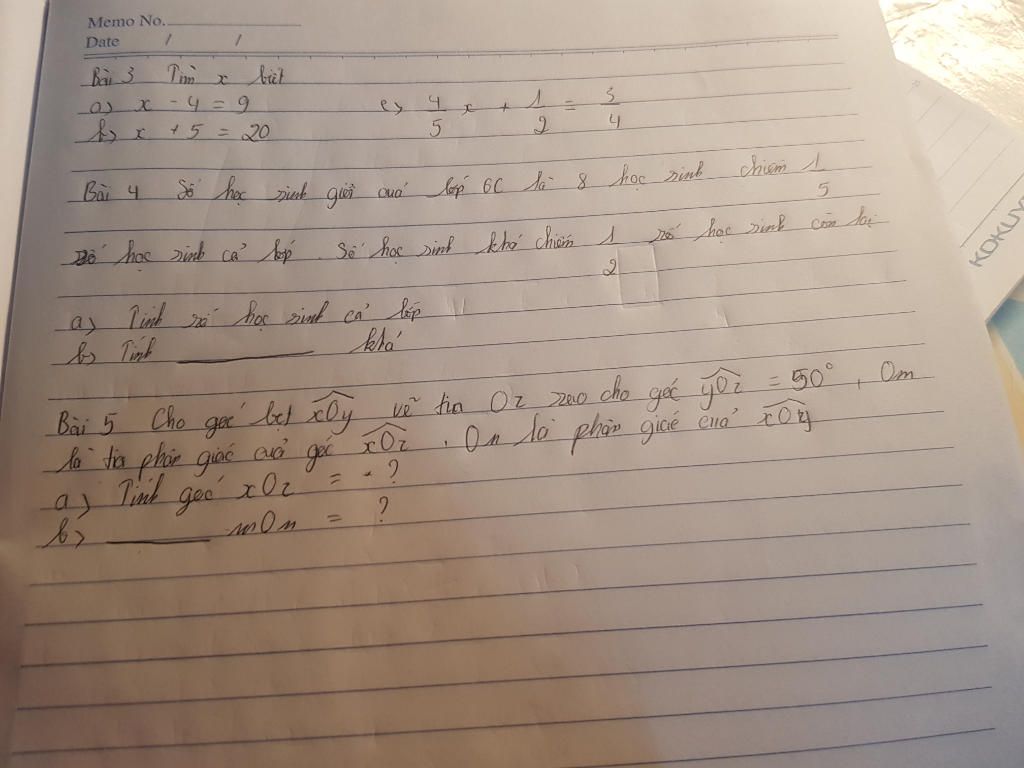 Memo No.
Date / /
Bài 3 Tìm x biết
a) x - 4 = 9 c) 4/5 x + 1/2 = 3/4
b) x + 5 = 20
Bài 4 Số học sinh giỏi của lớp 6C là 8 học sinh chiếm 1/5
số học sinh cả lớp. Số học sinh khá chiếm 1/2 số học sinh còn lại
a) Tính số học sinh cả lớp
b) Tính ______ khá
Bài 5 Cho góc bẹt xOy vẽ tia Oz sao cho góc yOz = 50°, Om
là tia phân giác của góc xOz, On là phân giác của
a) Tính góc xOz = ?
b) ______ mOn = ?
KOKUY